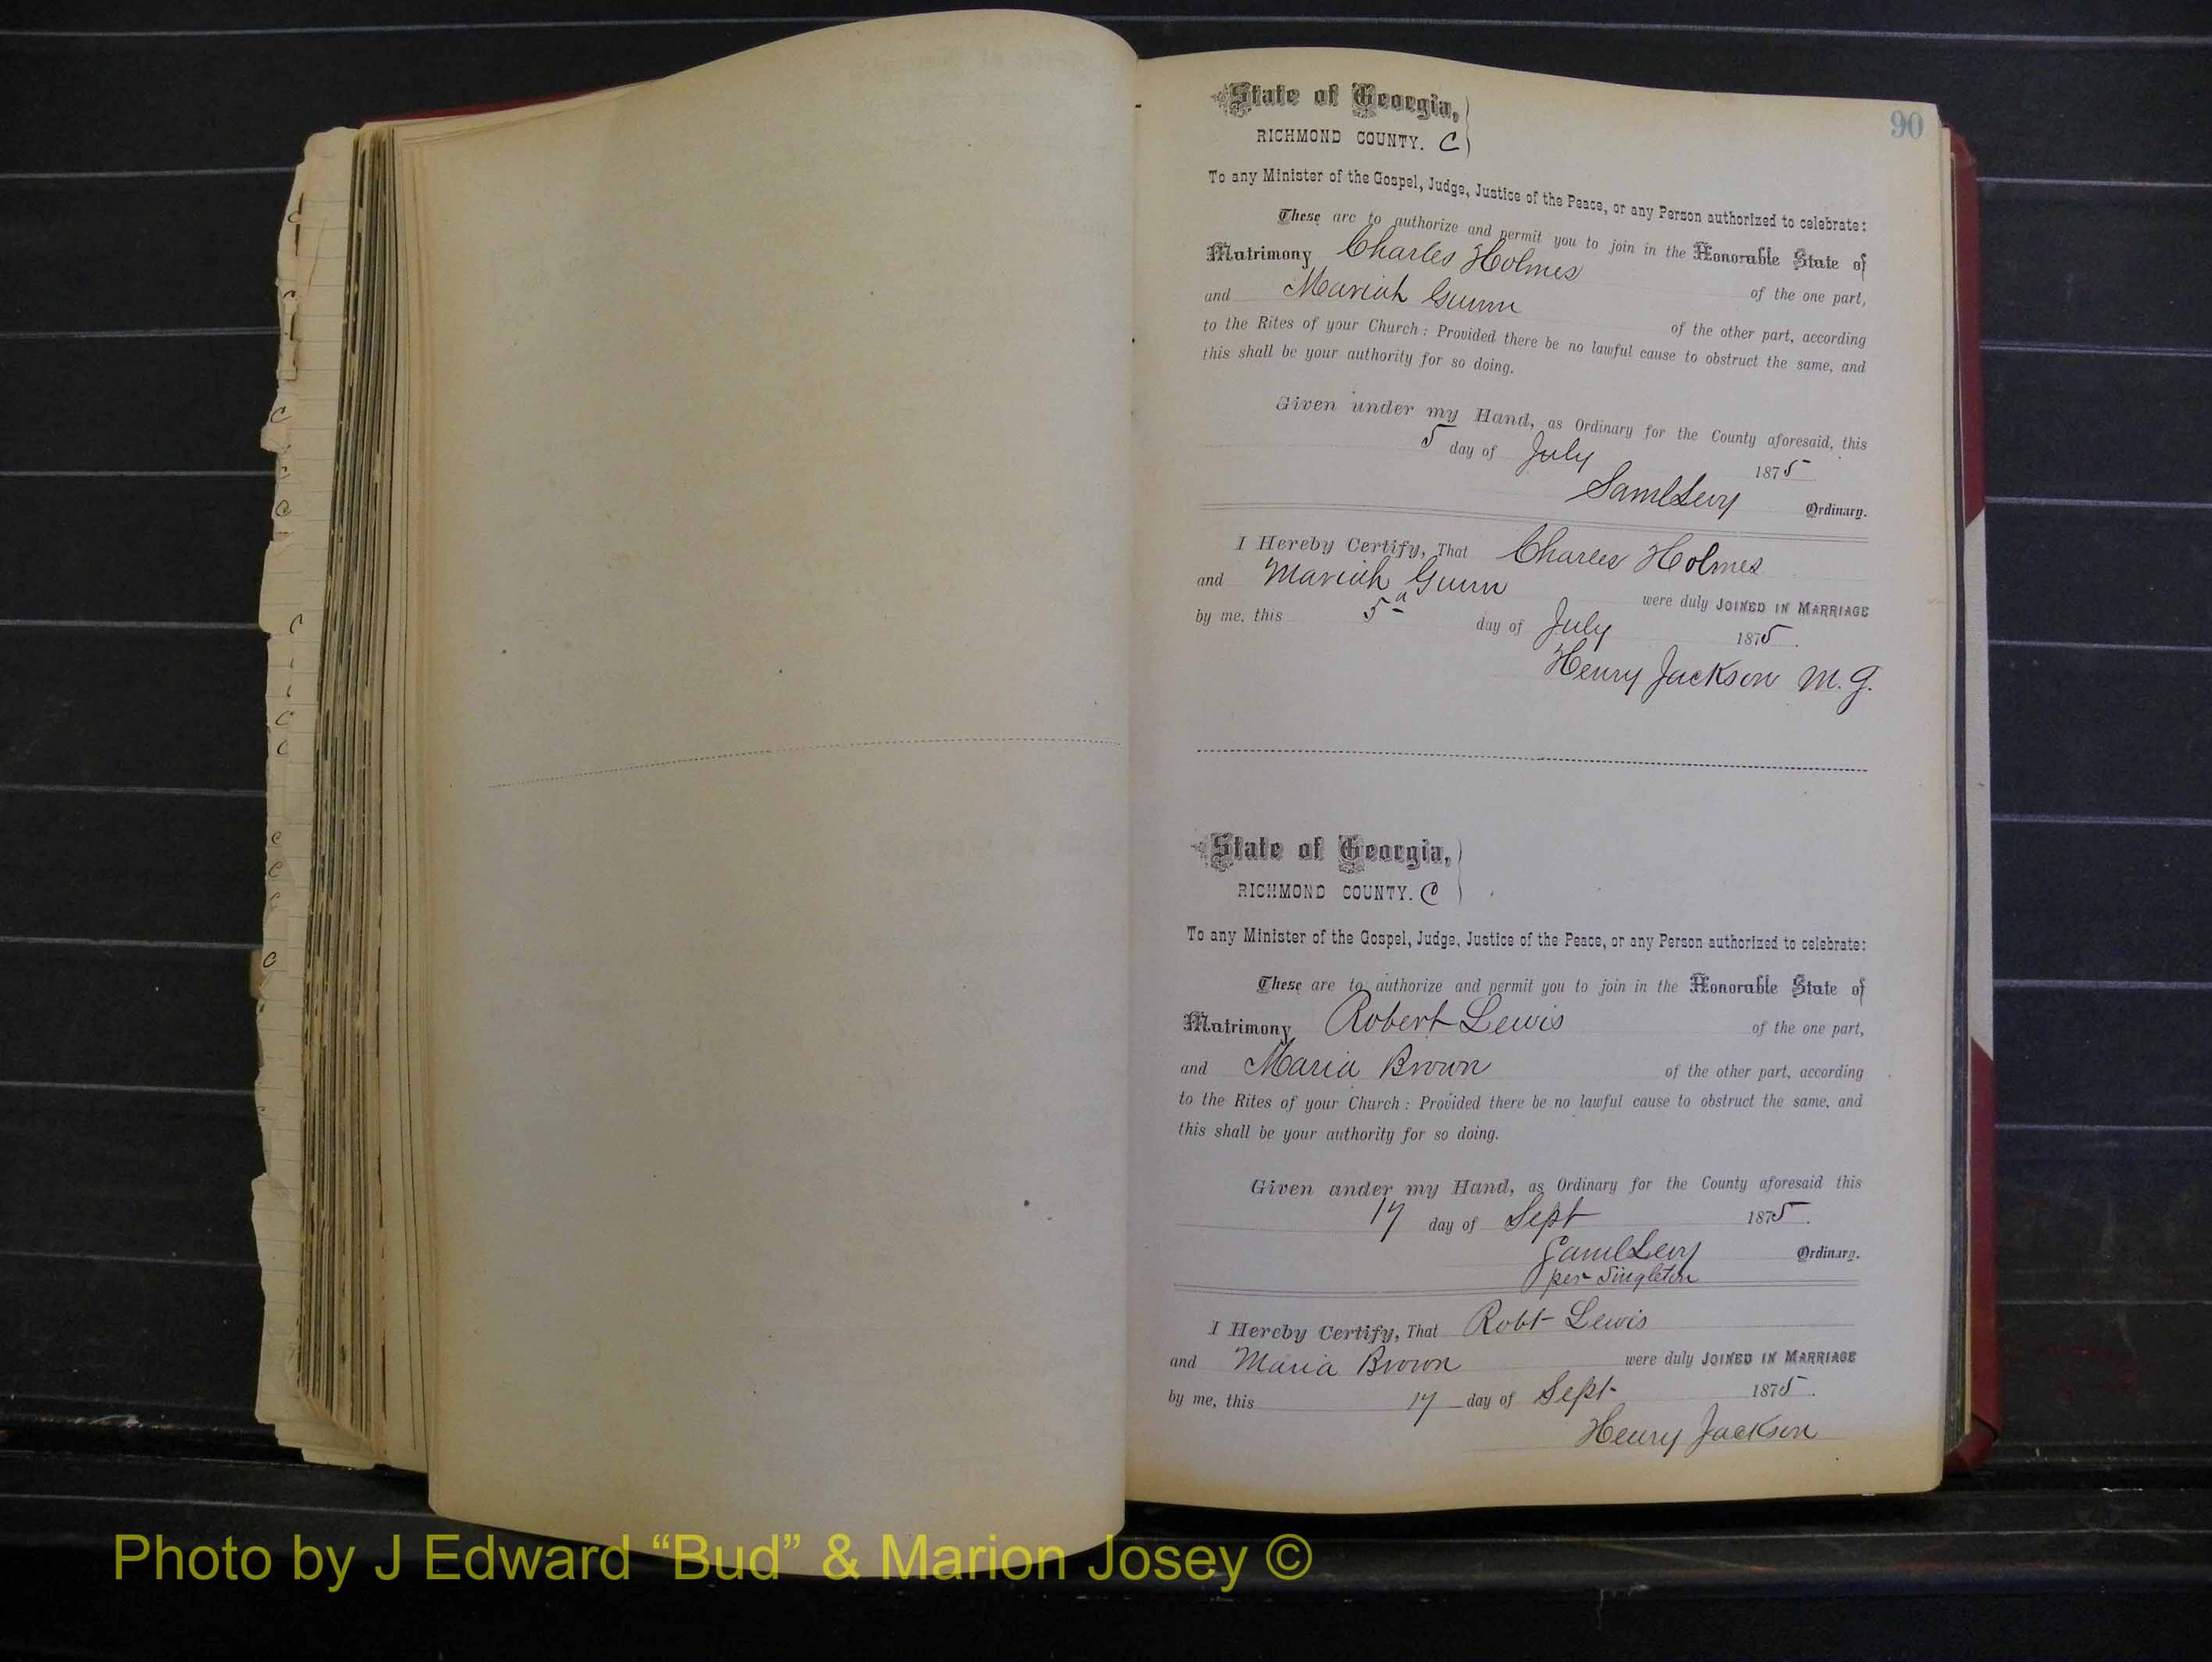 90
State of Georgia,
RICHMOND COUNTY. C
To any Minister of the Gospel, Judge, Justice of the Peace, or any Person authorized to celebrate:
These are to authorize and permit you to join in the Honorable State of
Matrimony Charles Holmes of the one part,
and Mariah Gunn of the other part, according
to the Rites of your Church: Provided there be no lawful cause to obstruct the same, and
this shall be your authority for so doing.
Given under my Hand, as Ordinary for the County aforesaid, this
5 day of July 1875
Saml Levy Ordinary.
I Hereby Certify, That Charles Holmes
and Mariah Gunn were duly JOINED IN MARRIAGE
by me, this 5 day of July 1875.
Henry Jackson M. G.
State of Georgia,
RICHMOND COUNTY. C
To any Minister of the Gospel, Judge, Justice of the Peace, or any Person authorized to celebrate:
These are to authorize and permit you to join in the Honorable State of
Matrimony Robert Lewis of the one part,
and Maria Brown of the other part, according
to the Rites of your Church: Provided there be no lawful cause to obstruct the same, and
this shall be your authority for so doing.
Given under my Hand, as Ordinary for the County aforesaid this
17 day of Sept 1875.
Saml Levy Ordinary.
per Singleton
I Hereby Certify, That Robt Lewis
and Maria Brown were duly JOINED IN MARRIAGE
by me, this 17 day of Sept. 1875.
Henry Jackson
Photo by J Edward “Bud” & Marion Josey ©